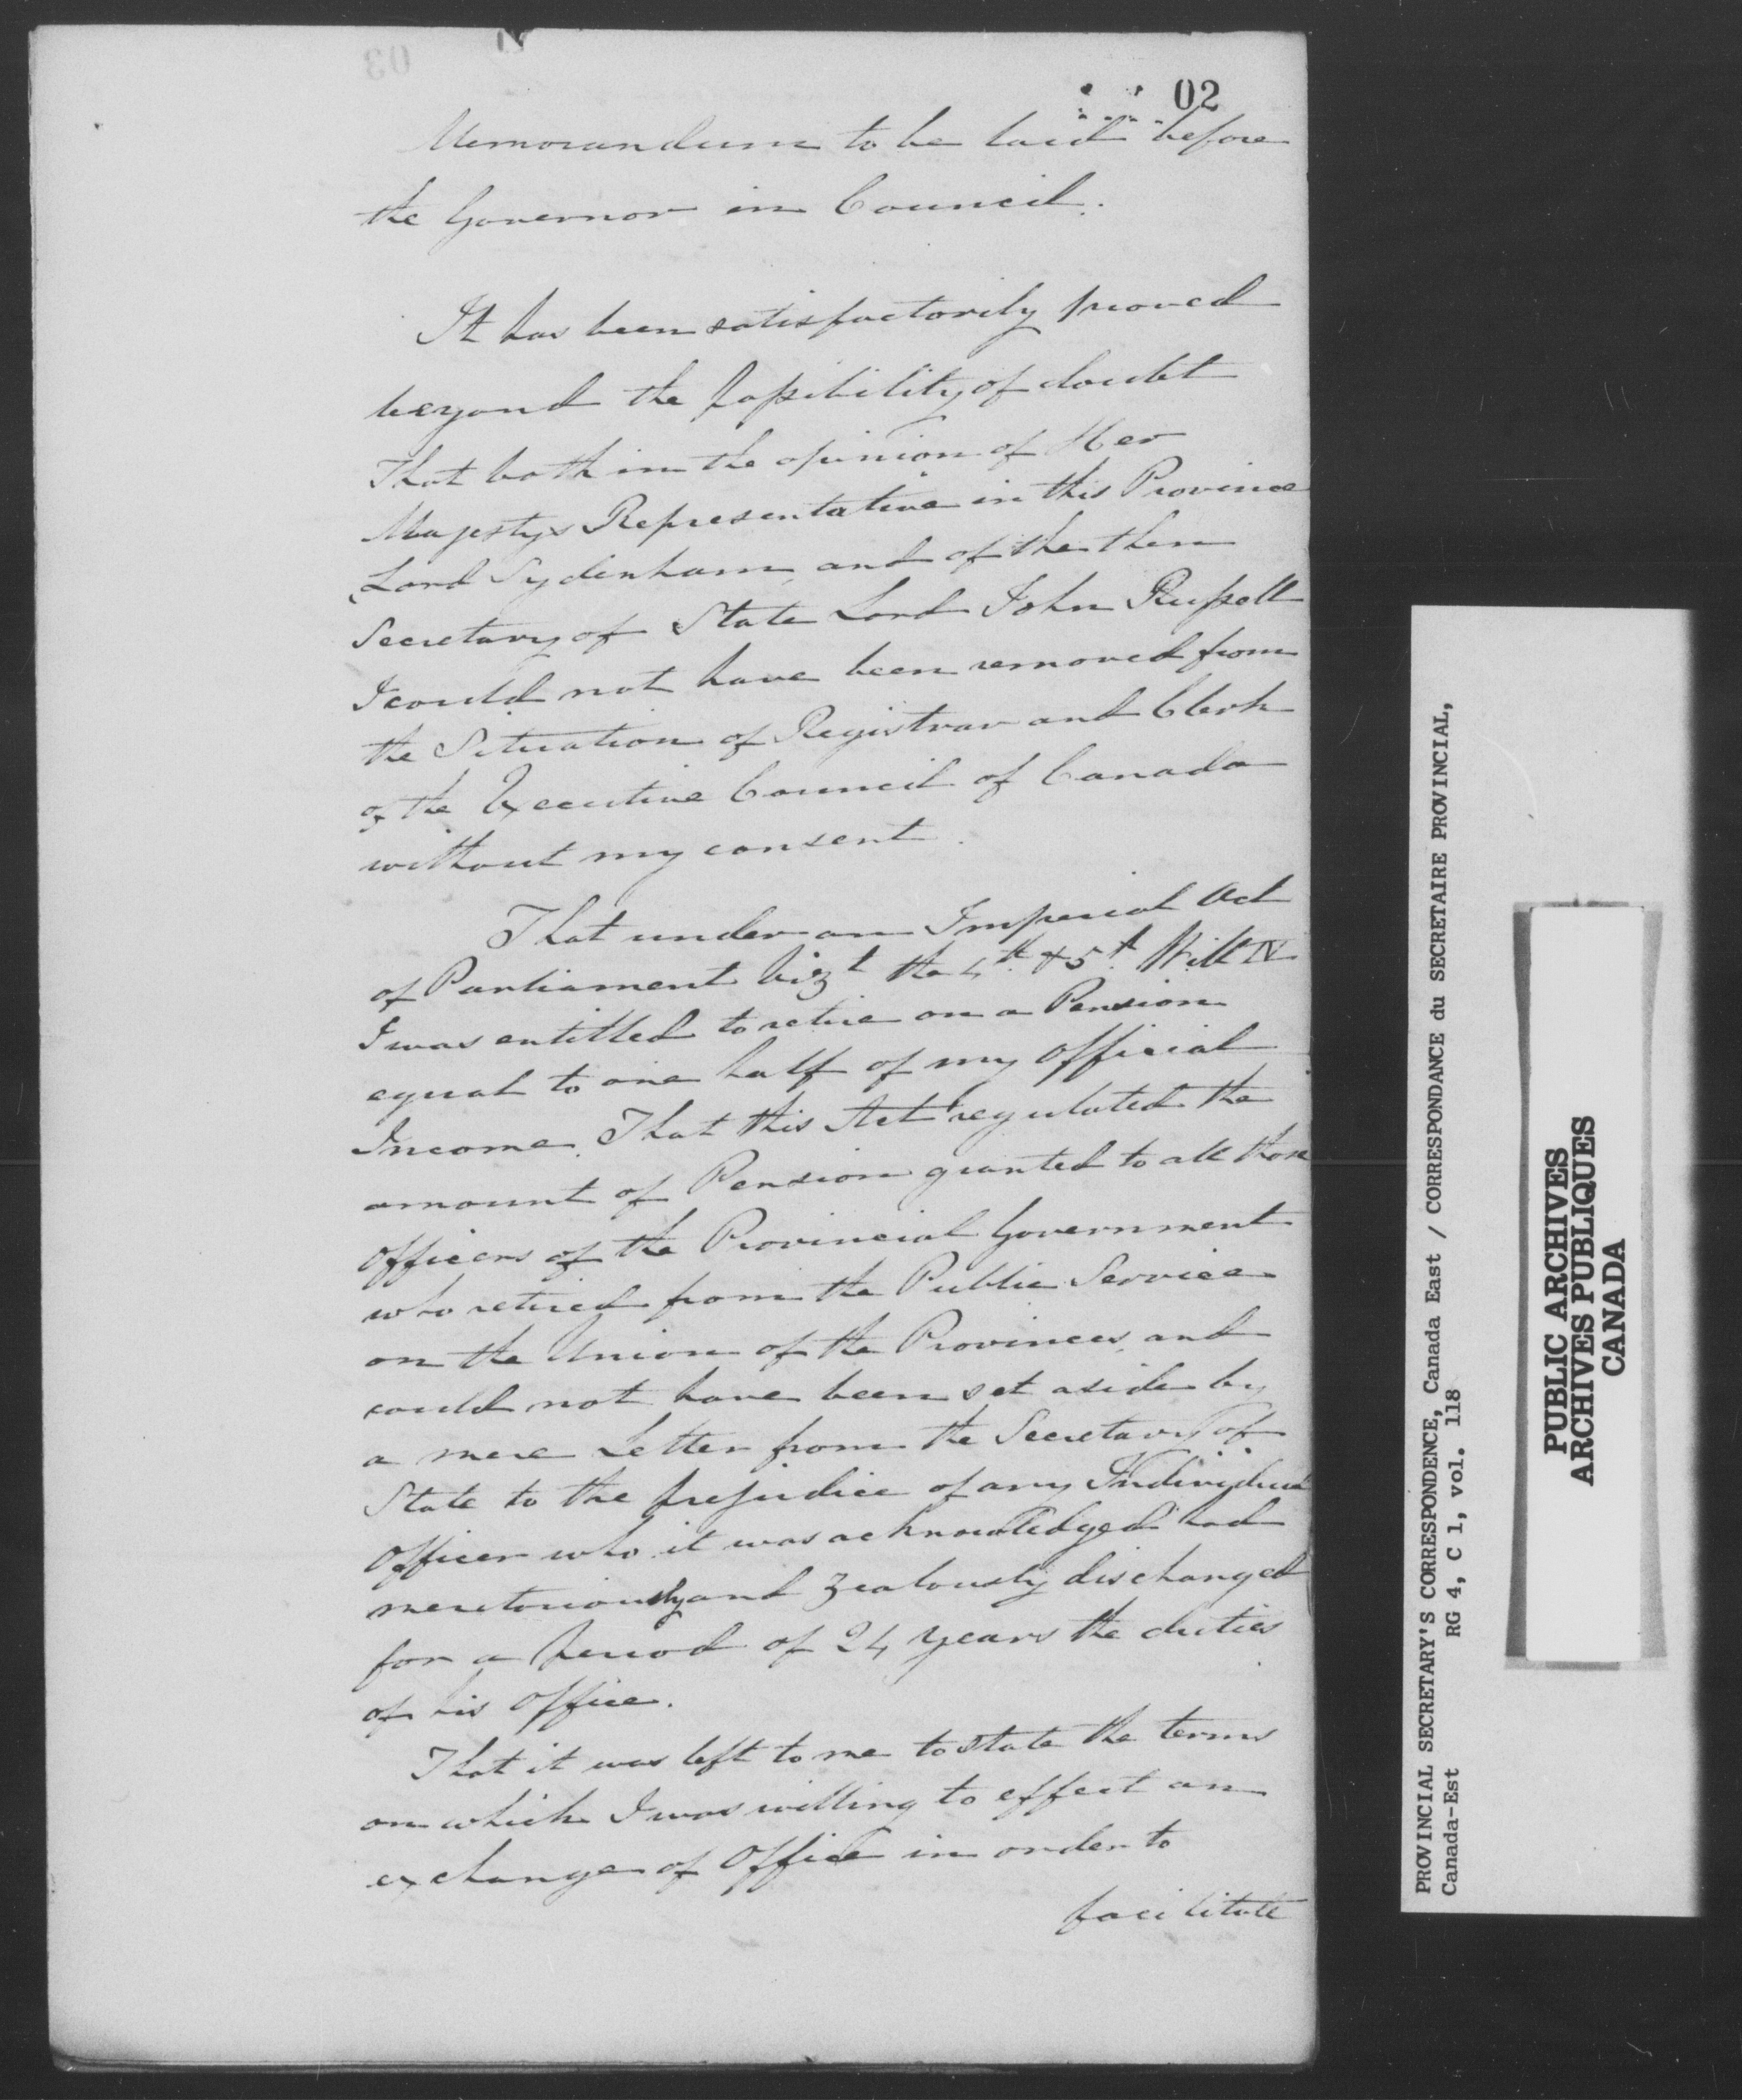 02
Memorandum to be laid before
the Governor in Council.
It has been satisfactorily proved
beyond the possibility of doubt
That both in the opinion of Her
Majestys Representative in this Province
Lord Sydenham, and of the then
Secretary of State Lord John Russell
I could not have been removed from
the Situation of Registrar and Clerk
of the Executive Council of Canada
without my consent.
That under an Imperial Act
of Parliament vizt the 4th & 5th Will IV
I was entitled to retire on a Pension
equal to one half of my Official
Income. That this Act regulated the
amount of Pension granted to all those
Officers of the Provincial Government
who retired from the Public Service
on the Union of the Provinces, and
could not have been set aside by
a mere Letter from the Secretary of
State to the prejudice of any Individual
Officer who it was acknowledged had
meritoriously and zealously discharged
for a period of 24 years the duties
of his Office.
That it was left to me to state the terms
on which I was willing to effect an
exchange of Office in order to
facilitate
PROVINCIAL SECRETARY'S CORRESPONDENCE, Canada East / CORRESPONDANCE du SECRETAIRE PROVINCIAL,
Canada-Est RG 4, C 1, vol. 118
PUBLIC ARCHIVES
ARCHIVES PUBLIQUES
CANADA